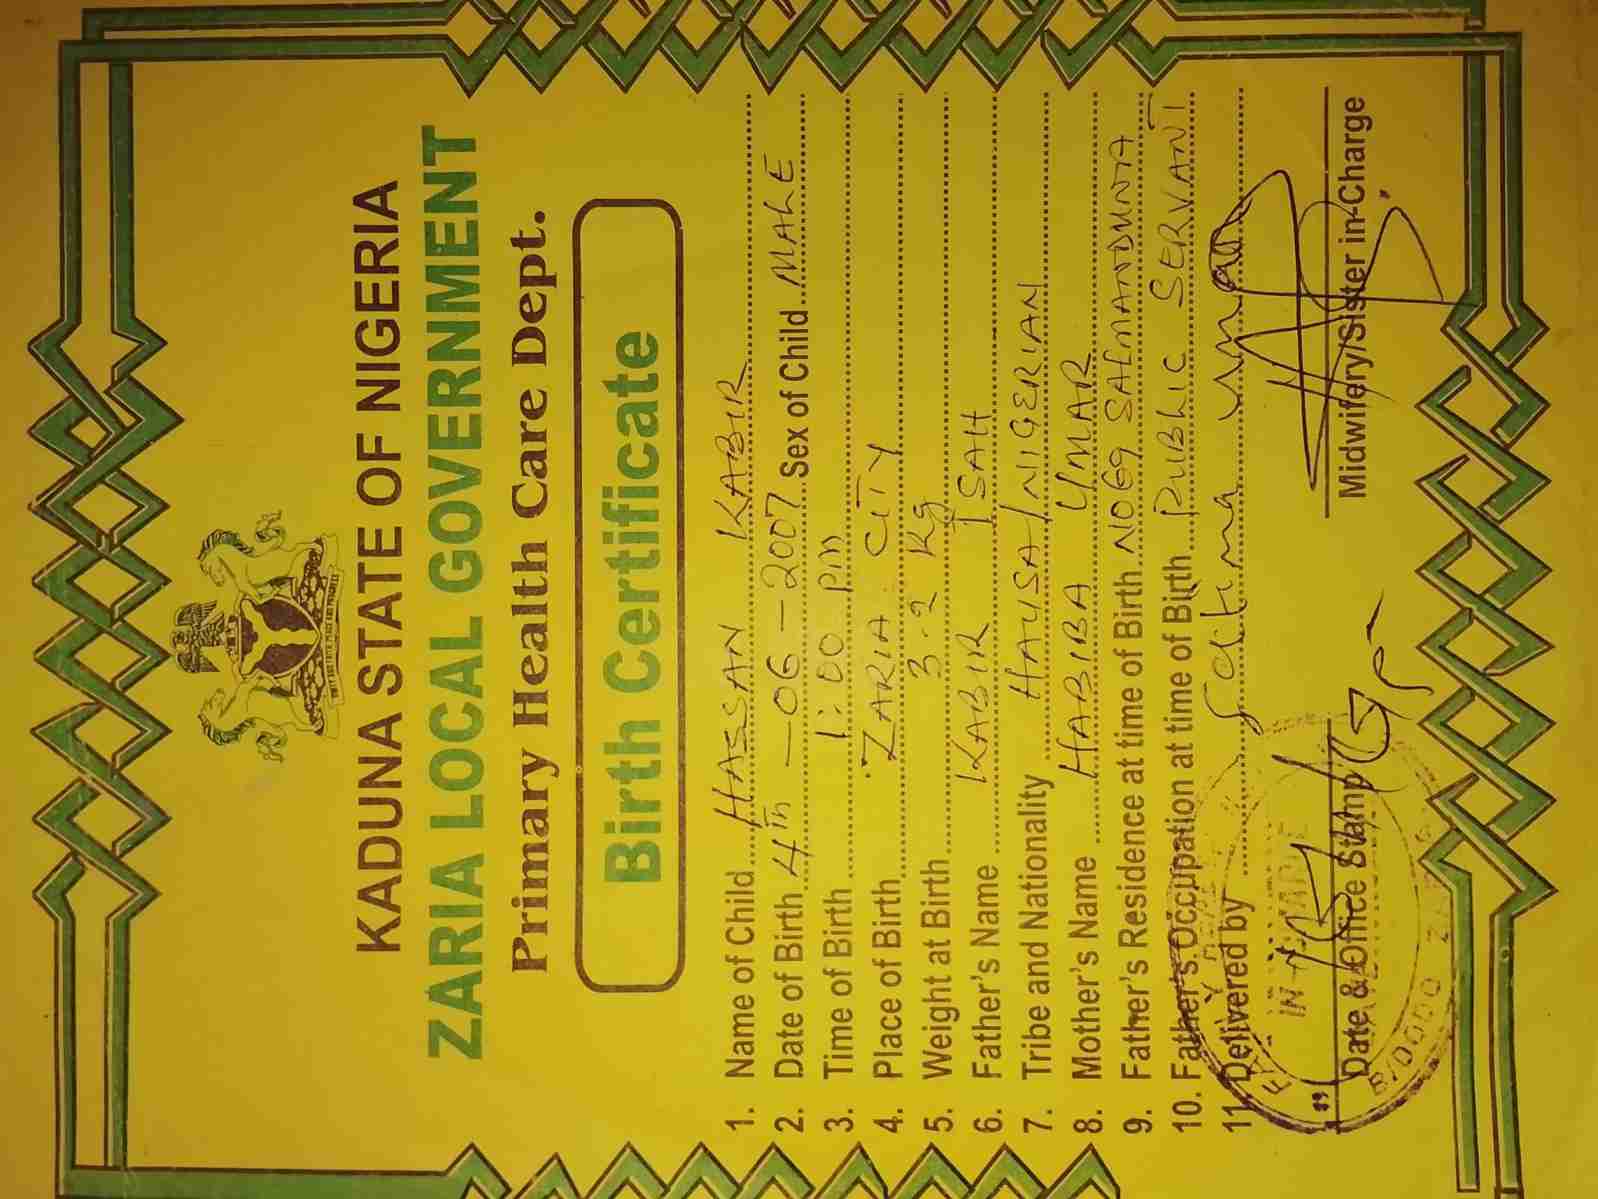 KADUNA STATE OF NIGERIA
ZARIA LOCAL GOVERNMENT
Primary Health Care Dept.
Birth Certificate
1. Name of Child HASSAN KABIR
2. Date of Birth 4th -06-2007 Sex of Child MALE
3. Time of Birth 1:00 PM
4. Place of Birth ZARIA CITY
5. Weight at Birth 3.2 Kg
6. Father's Name KABIR ISAH
7. Tribe and Nationality HAUSA/NIGERIAN
8. Mother's Name HABIBA UMAR
9. Father's Residence at time of Birth NO69 SALMANDUNA
10. Father's Occupation at time of Birth PUBLIC SERVANT
11. Delivered by Fatima Umar
Date & Office Stamp
Midwifery/Sister in-Charge